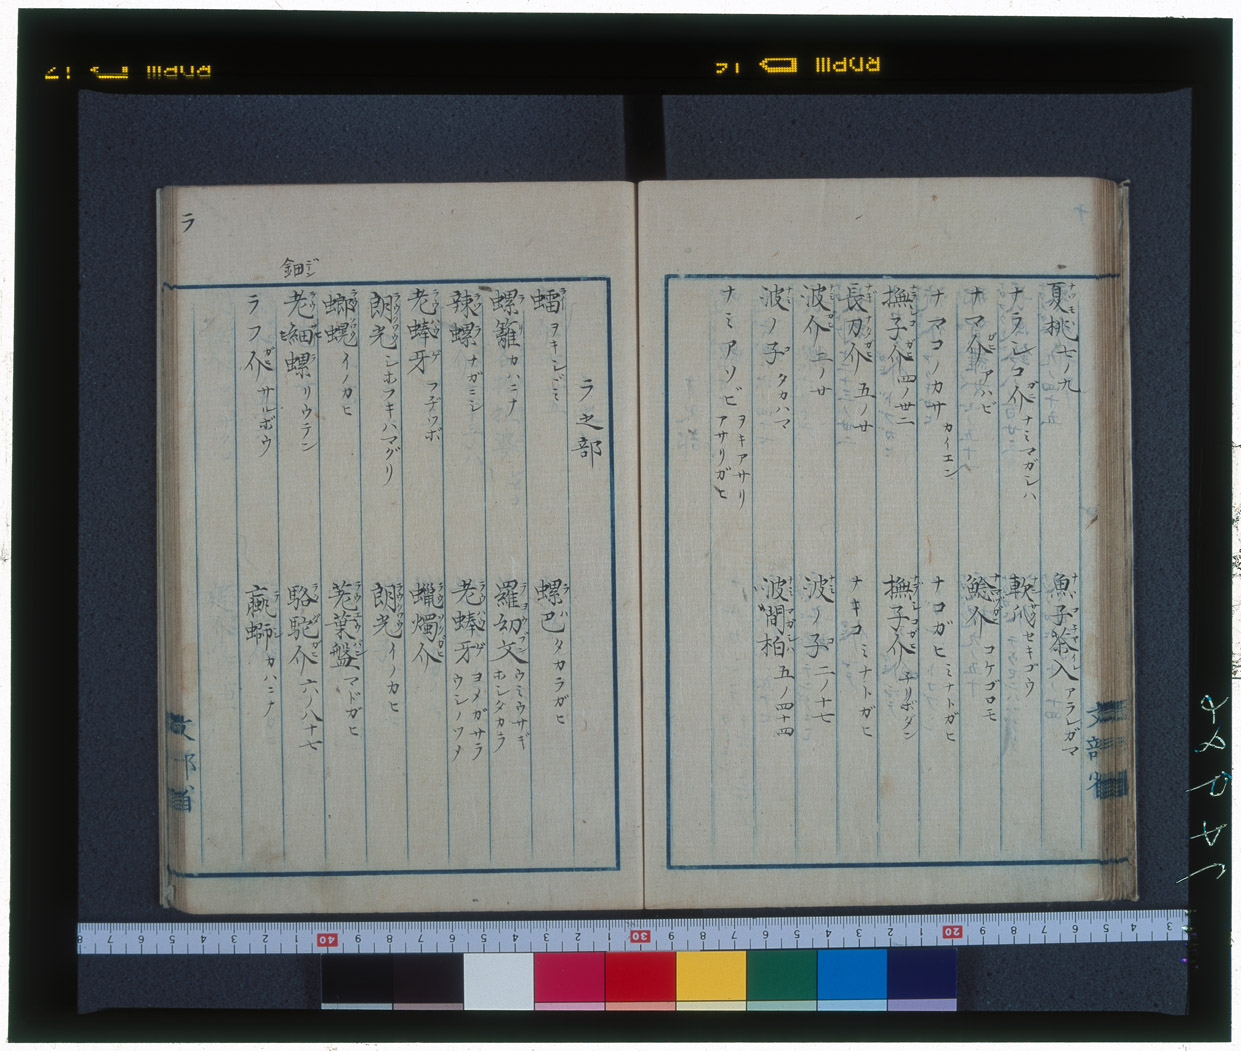 夏桃 七ノ九
魚子茶入 アラレガマ
ナデシコ介 ナミマガシハ
軟代 セキゴウ
ナマ介 アハビ
鯰介 コケゴロモ
ナマコノカサ カイエン
ナコガヒ ミナトガヒ
撫子介 四ノ廿二
撫子介 チリボタン
長刀介 五ノ廿
ナキコ ミナトガヒ
波介 二ノ廿
波ノ子 二ノ十七
波ノ子 タカハマ
波間柏 五ノ四十四
ナミアソビ ヲキアサリ
アサリガヒ
文部省
ラ
ラ之部
蠕 ヲキシヾミ
螺巴 タカラガヒ
螺籬 カハニナ
羅幼文 ウミウサギ
ホシタカラ
辣螺 ナガニシ
老蜯牙 ヨメガサラ
ウシノツメ
老蜯牙 フヂツボ
蠟燭介
朗光 シホフキハマグリ
朗光 イノカヒ
螂蜆 イノカヒ
荖葉盤 マドガヒ
鈿 デン
老細螺 リウテン
駱駝介 六ノ八十七
ラフ介 サルボウ
蠃螄 カハニナ
文部省